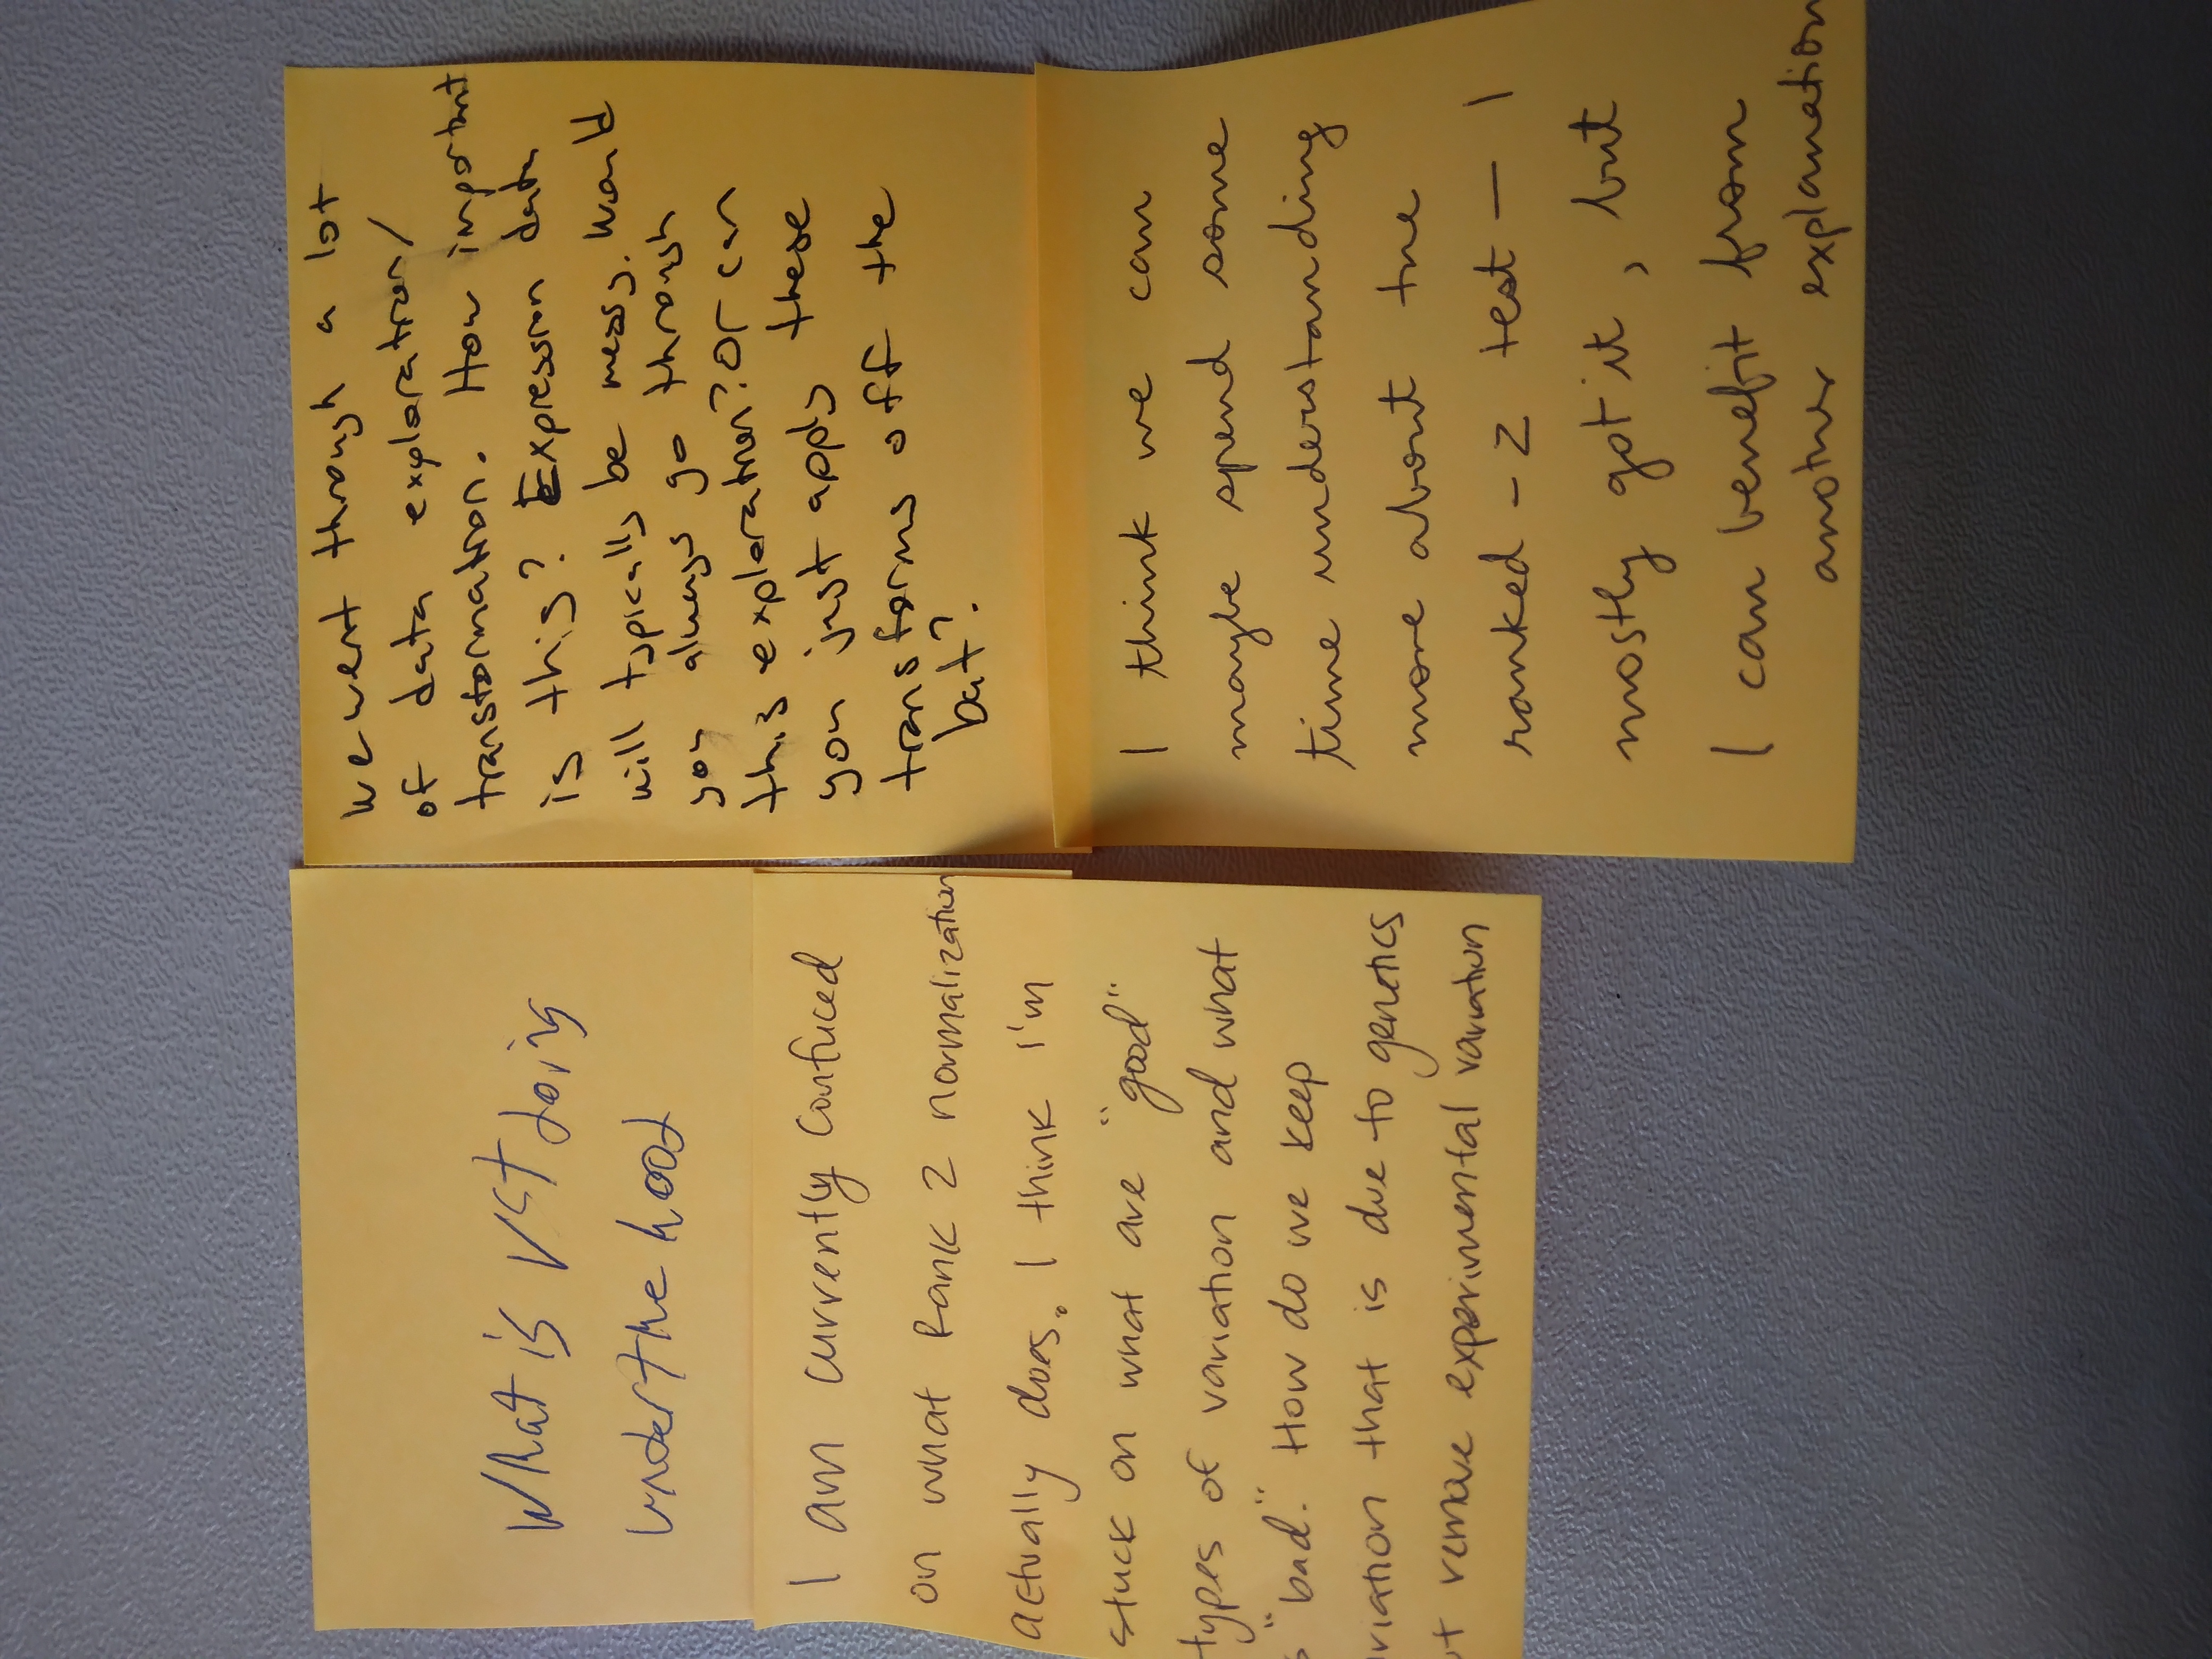 What is VST doing
under the hood
I am currently confuced
on what Rank Z normalization
actually does. I think I'm
stuck on what are "good"
types of variation and what
"bad." How do we keep
that is due to genetics
remove experimental variation
we went through a lot
of data exploration/
transformation. How important
is this? Expression data
will typically be messy. Would
you always go through
this exploration? Or can
you just apply these
transforms off the
bat?
I think we can
maybe spend some
time understanding
more about the
ranked - Z test — I
mostly got it, but
I can benefit from
another explanation